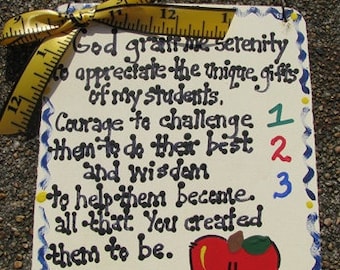 God grant me serenity
to appreciate the unique gifts
of my students.
Courage to challenge
them to do their best
and wisdom
to help them become
all that You created
them to be.
1
2
3